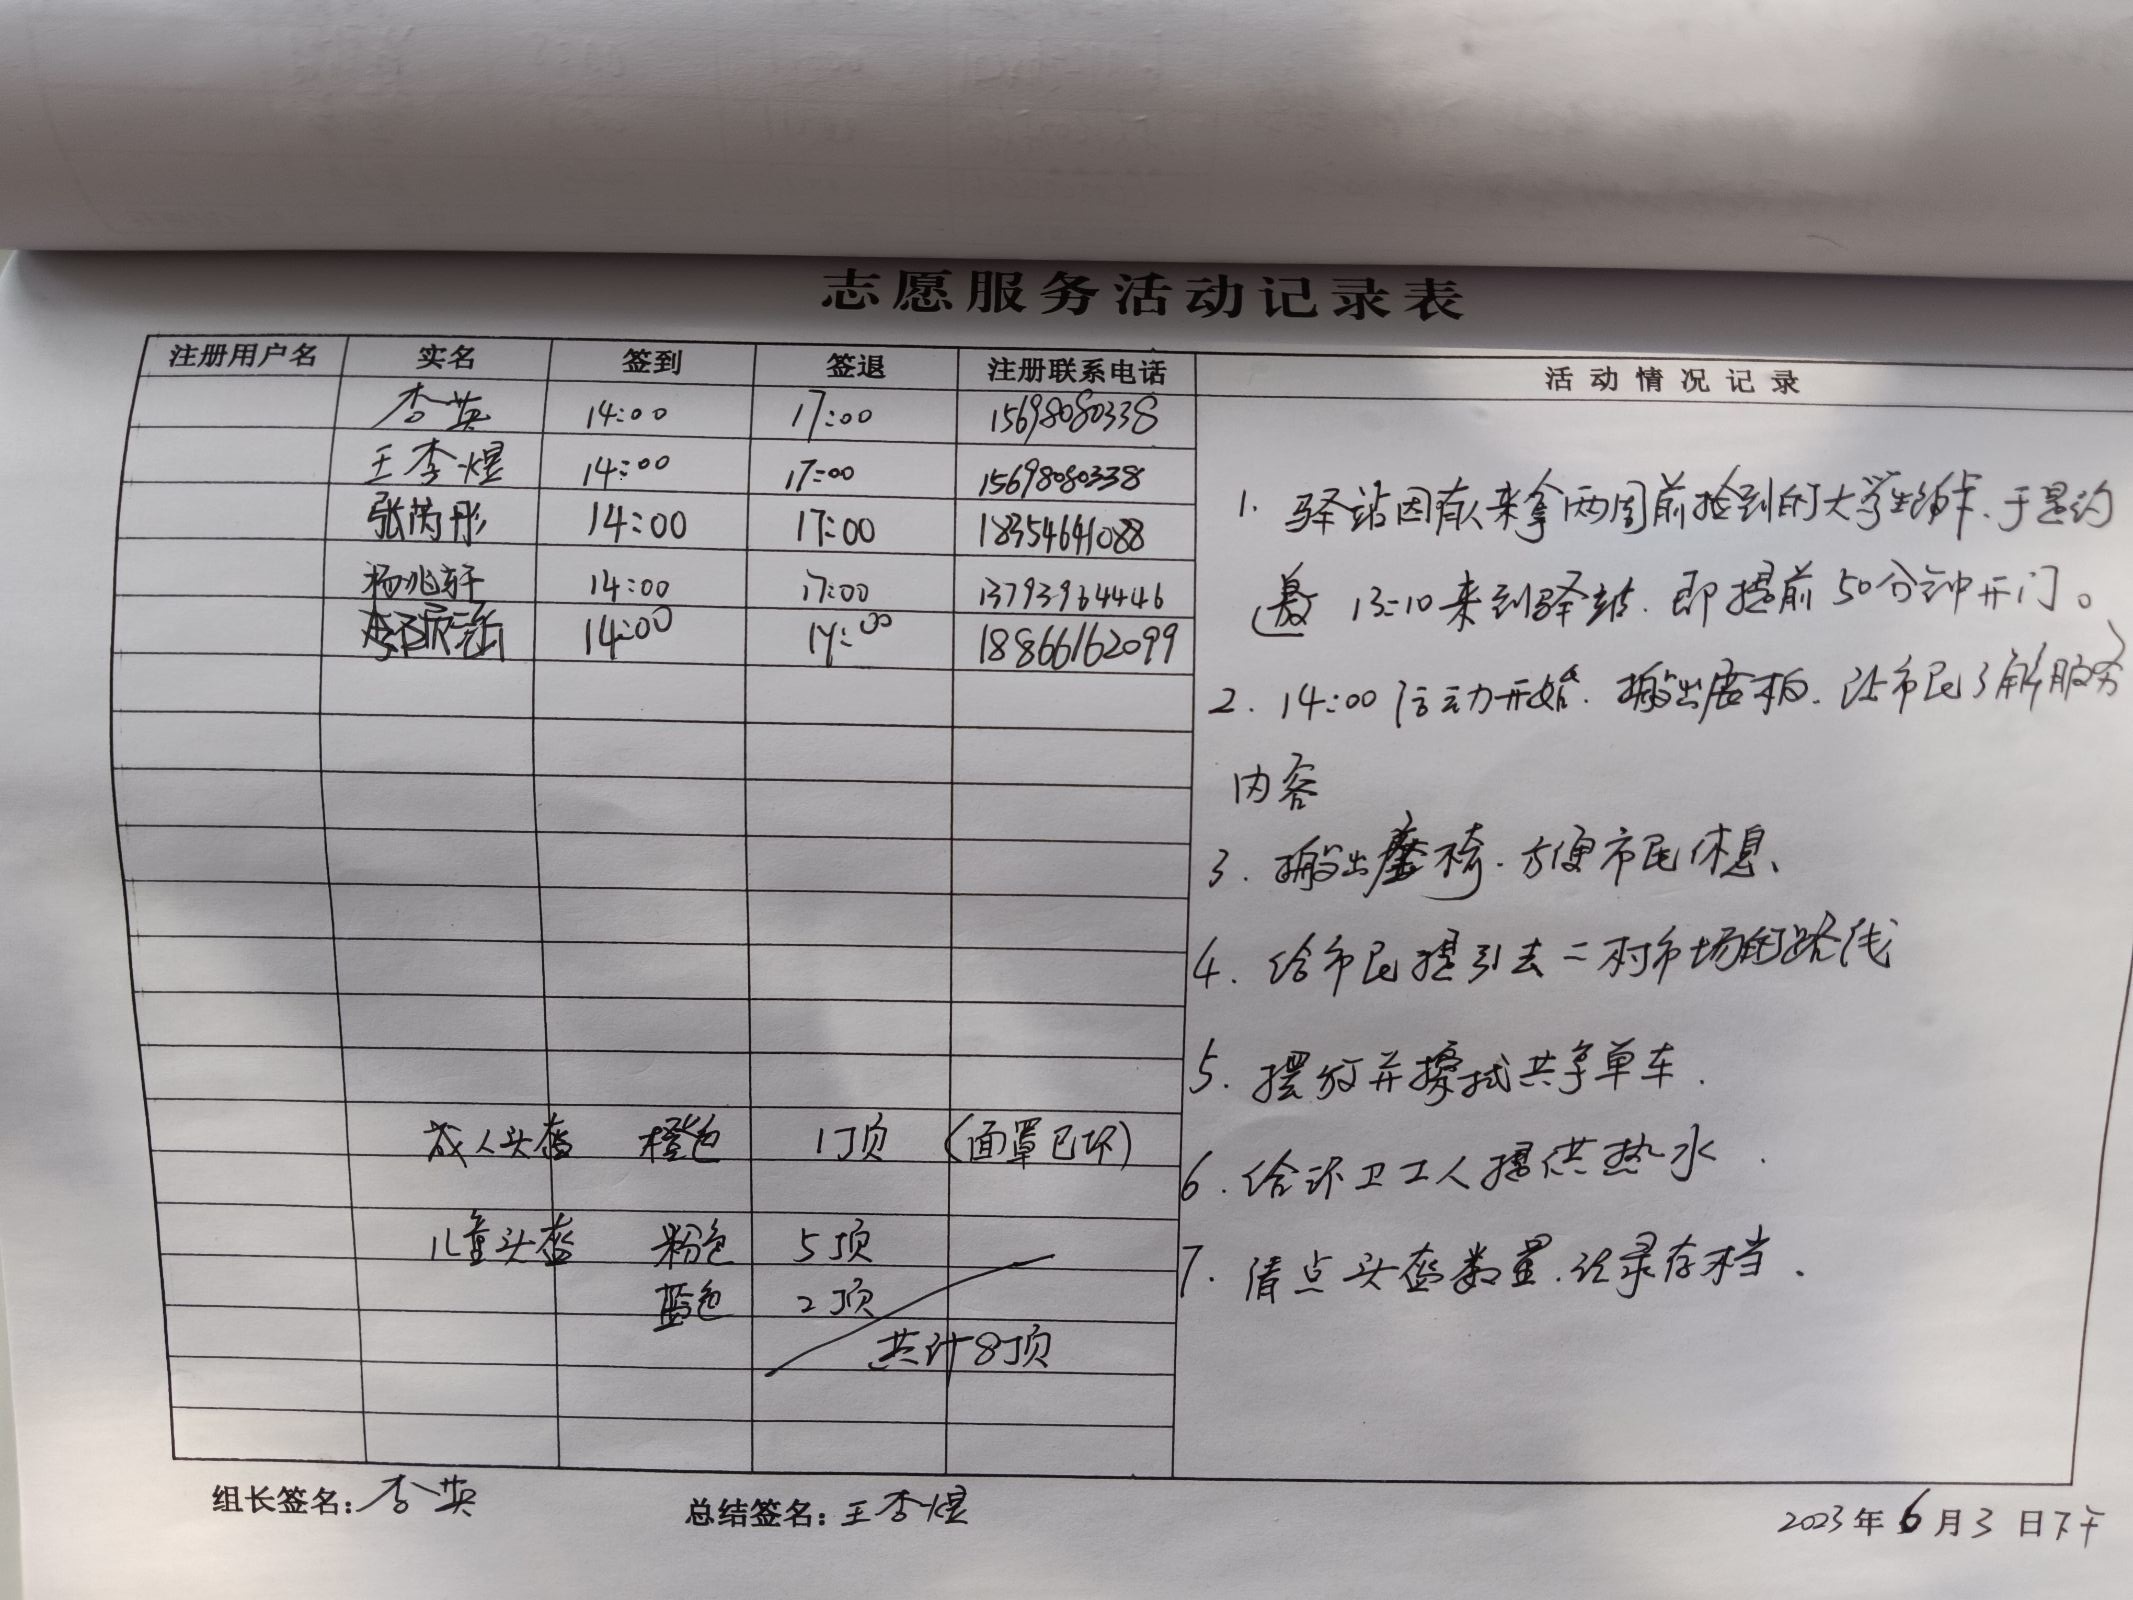 志愿服务活动记录表
注册用户名 实名 签到 签退 注册联系电话 活动情况记录
李英 14:00 17:00 15698080338
王李煜 14:00 17:00 15698080338
张芮彤 14:00 17:00 18354641088
杨兆轩 14:00 17:00 13793964446
14:00 17:00 18866162099
1. 驿站因有人来拿两周前捡到的大学生饭卡、于是约
邀 13:10来到驿站.即提前50分钟开门。
2. 14:00活动开始.搬出展柏.让市民了解服务
内容
3. 搬出座椅.方便市民休息、
4. 给市民提引去二村市场的路线
5. 摆放并擦拭共享单车.
6. 给环卫工人提供热水.
7. 清点头盔数量.记录存档.
成人头盔 橙色 1顶 (面罩已坏)
儿童头盔 粉色 5顶
蓝色 2顶
共计8顶
组长签名:李英 总结签名:王李煜 2023年6月3日下午